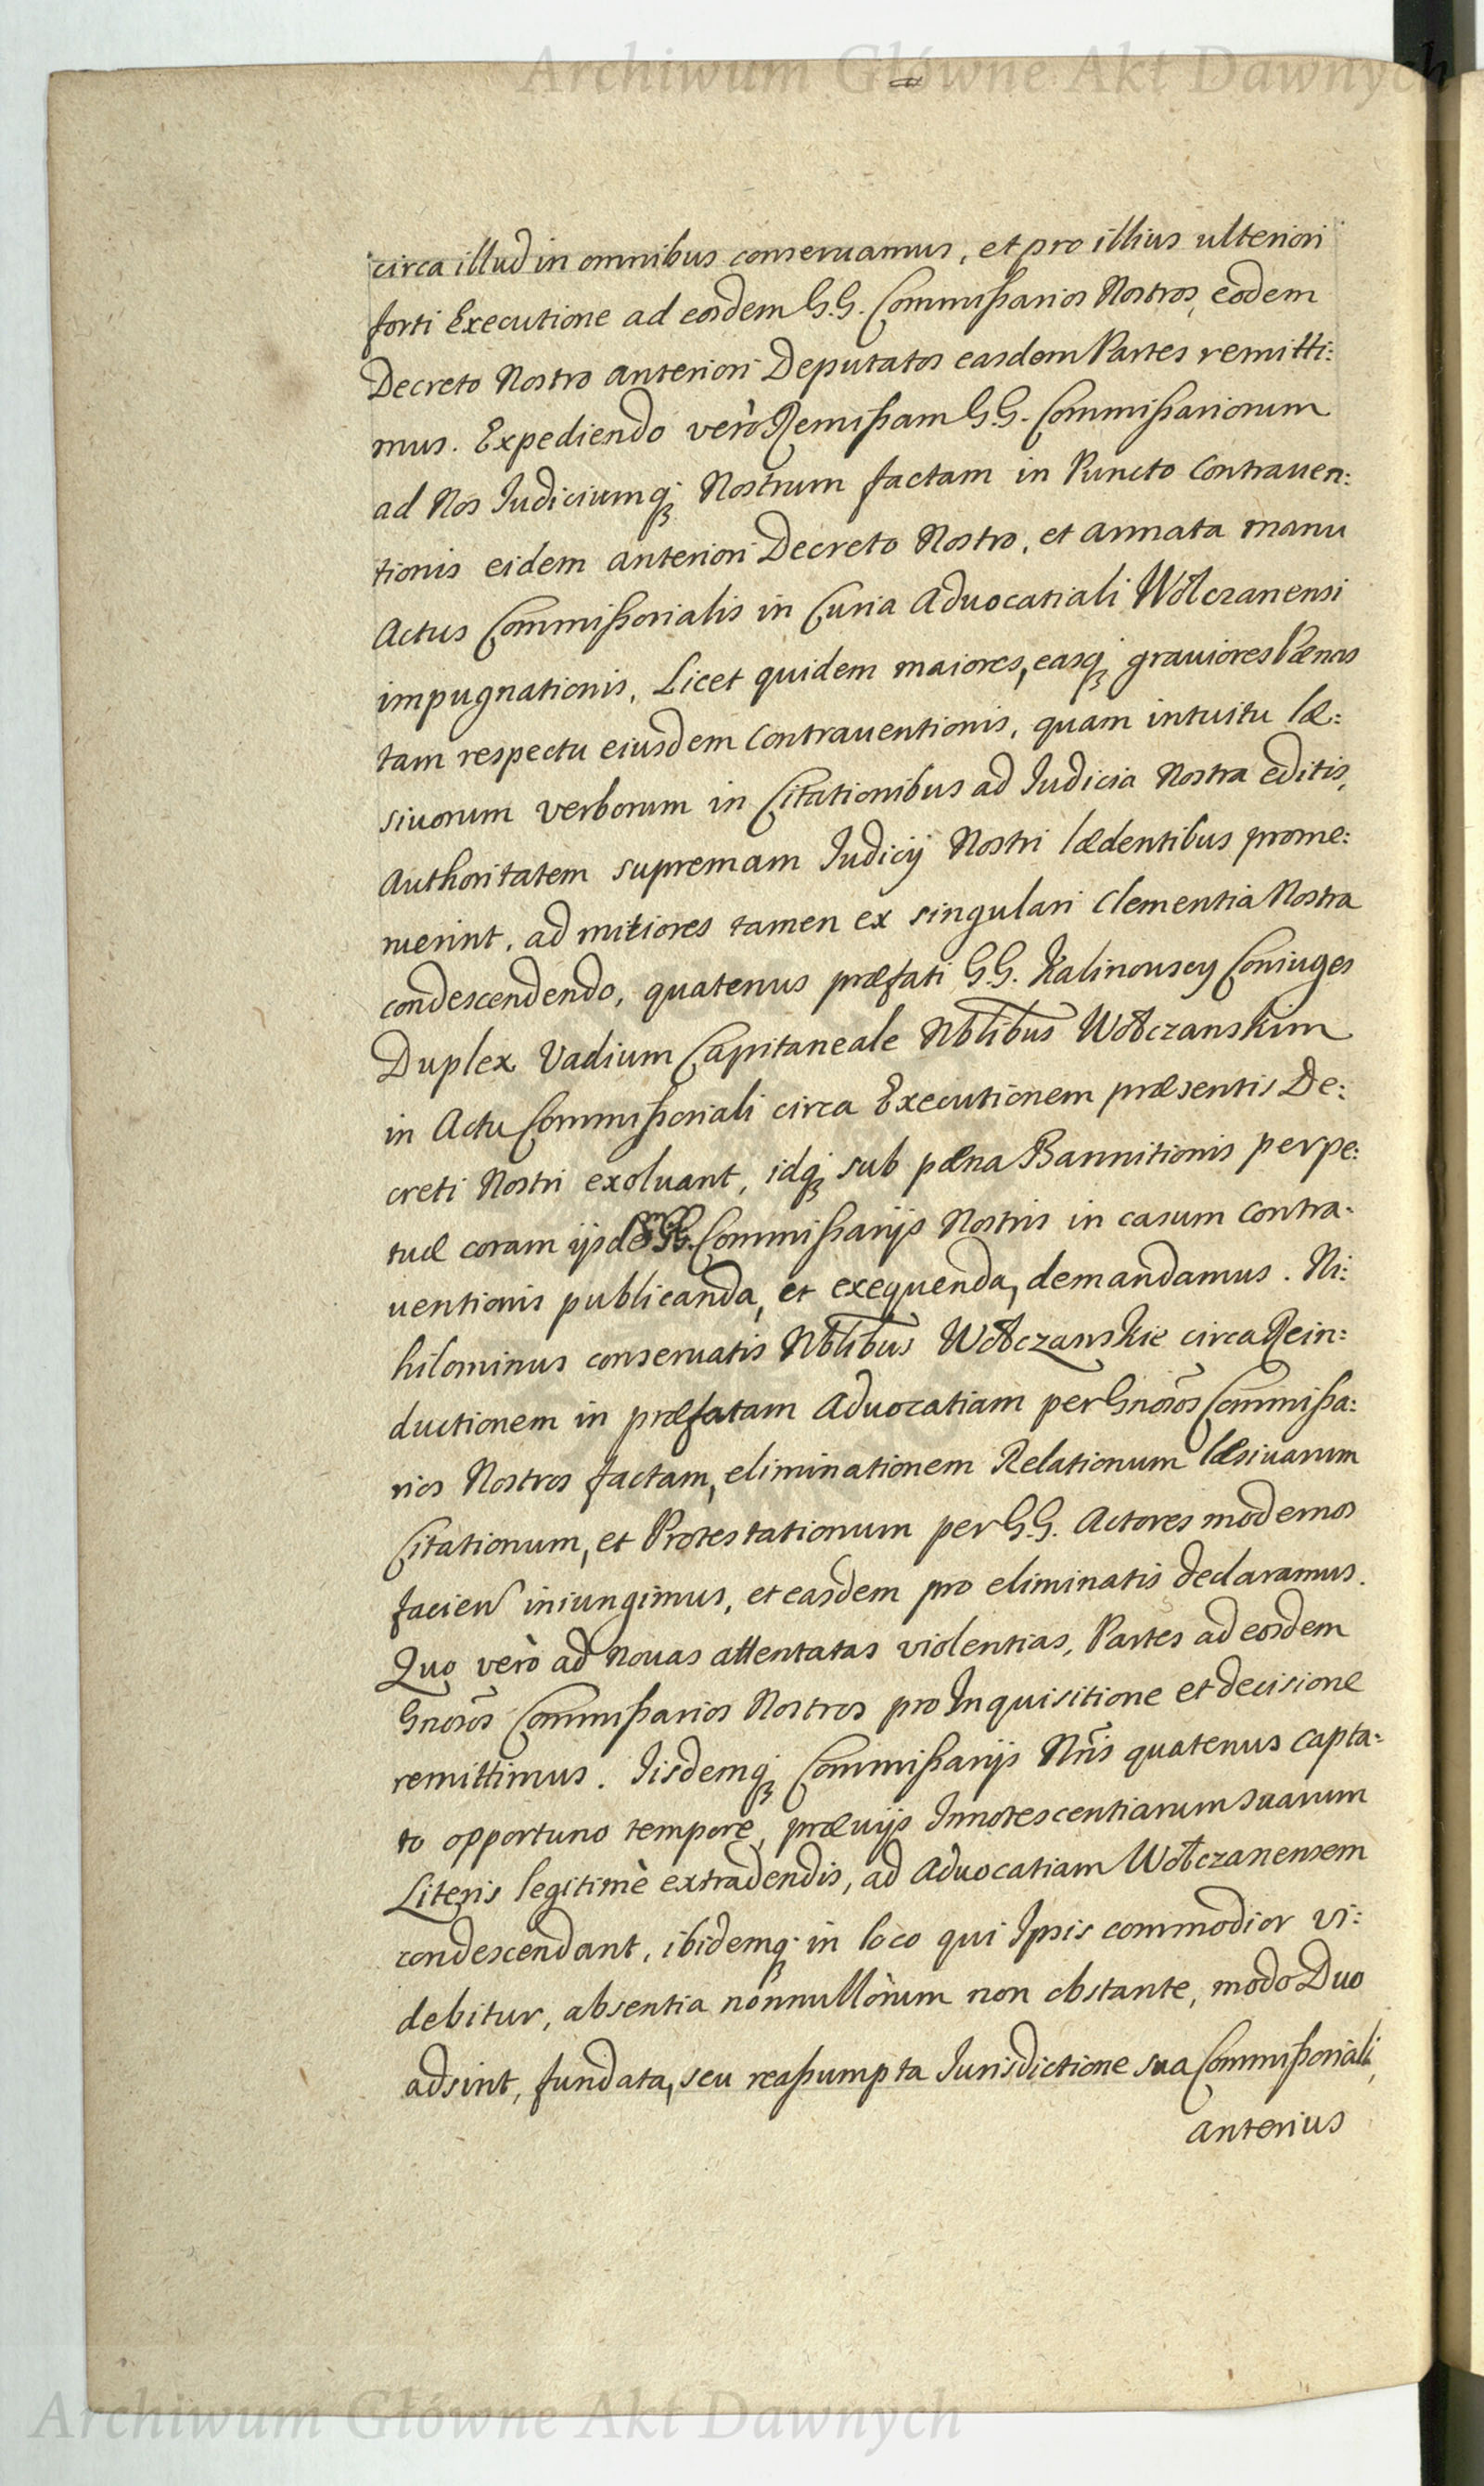 Archiwum Główne Akt Dawnych
circa illud in omnibus conseruamus, et pro illius ulteriori
forti Executione ad eosdem G.G. Commissarios Nostros, eodem
Decreto Nostro anteriori Deputatos easdem Partes remitti:
mus. Expediendo verò Remissam G.G. Commissariorum
ad Nos Iudiciumq; Nostrum factam in Puncto Contrauen:
tionis eidem anteriori Decreto Nostro, et armata manu
Actus Commissorialis in Curia Aduocatiali Wołczanensi
impugnationis, Licet quidem maiores, easq; grauiores Pænas
tam respectu eiusdem Contrauentionis, quam intuitu læ:
siuorum verborum in Citationibus ad Iudicia Nostra editis,
Authoritatem supremam Iudicij Nostri lædentibus prome:
ruerint, ad mitiores tamen ex singulari Clementia Nostra
condescendendo, quatenus præfati G.G. Kalinouscy Coniuges
Duplex Vadium Capitaneale Nblibus Wołczanskim
in Actu Commissoriali circa Executionem præsentis De:
creti Nostri exoluant, idq; sub pæna Bannitionis perpe:
tuæ coram ijsdem GG. Commissarijs Nostris in casum Contra-
uentionis publicanda, et exequenda, demandamus. Ni:
hilominus conseruatis Nblibus Wołczanskie circa Rein:
ductionem in præfatam Aduocatiam per Gnosos Commissa:
rios Nostros factam, eliminationem Relationum læsiuarum
Citationum, et Protestationum per G.G. Actores modernos
facien iniungimus, et easdem pro eliminatis declaramus.
Quo verò ad nouas attentatas violentias, Partes ad eosdem
Gnosos Commissarios Nostros pro Inquisitione et decisione
remittimus. Iisdemq; Commissarijs Nris quatenus capta-
to opportuno tempore, præuijs Innotescentiarum suarum
Literis legitimè extradendis, ad Aduocatiam Wołczanensem
condescendant, ibidemq; in loco qui Ipsis commodior vi:
debitur, absentia nonnullorum non obstante, modo Duo
adsint, fundata, seu reassumpta Iurisdictione sua Commissoriali,
anterius
Archiwum Główne Akt Dawnych